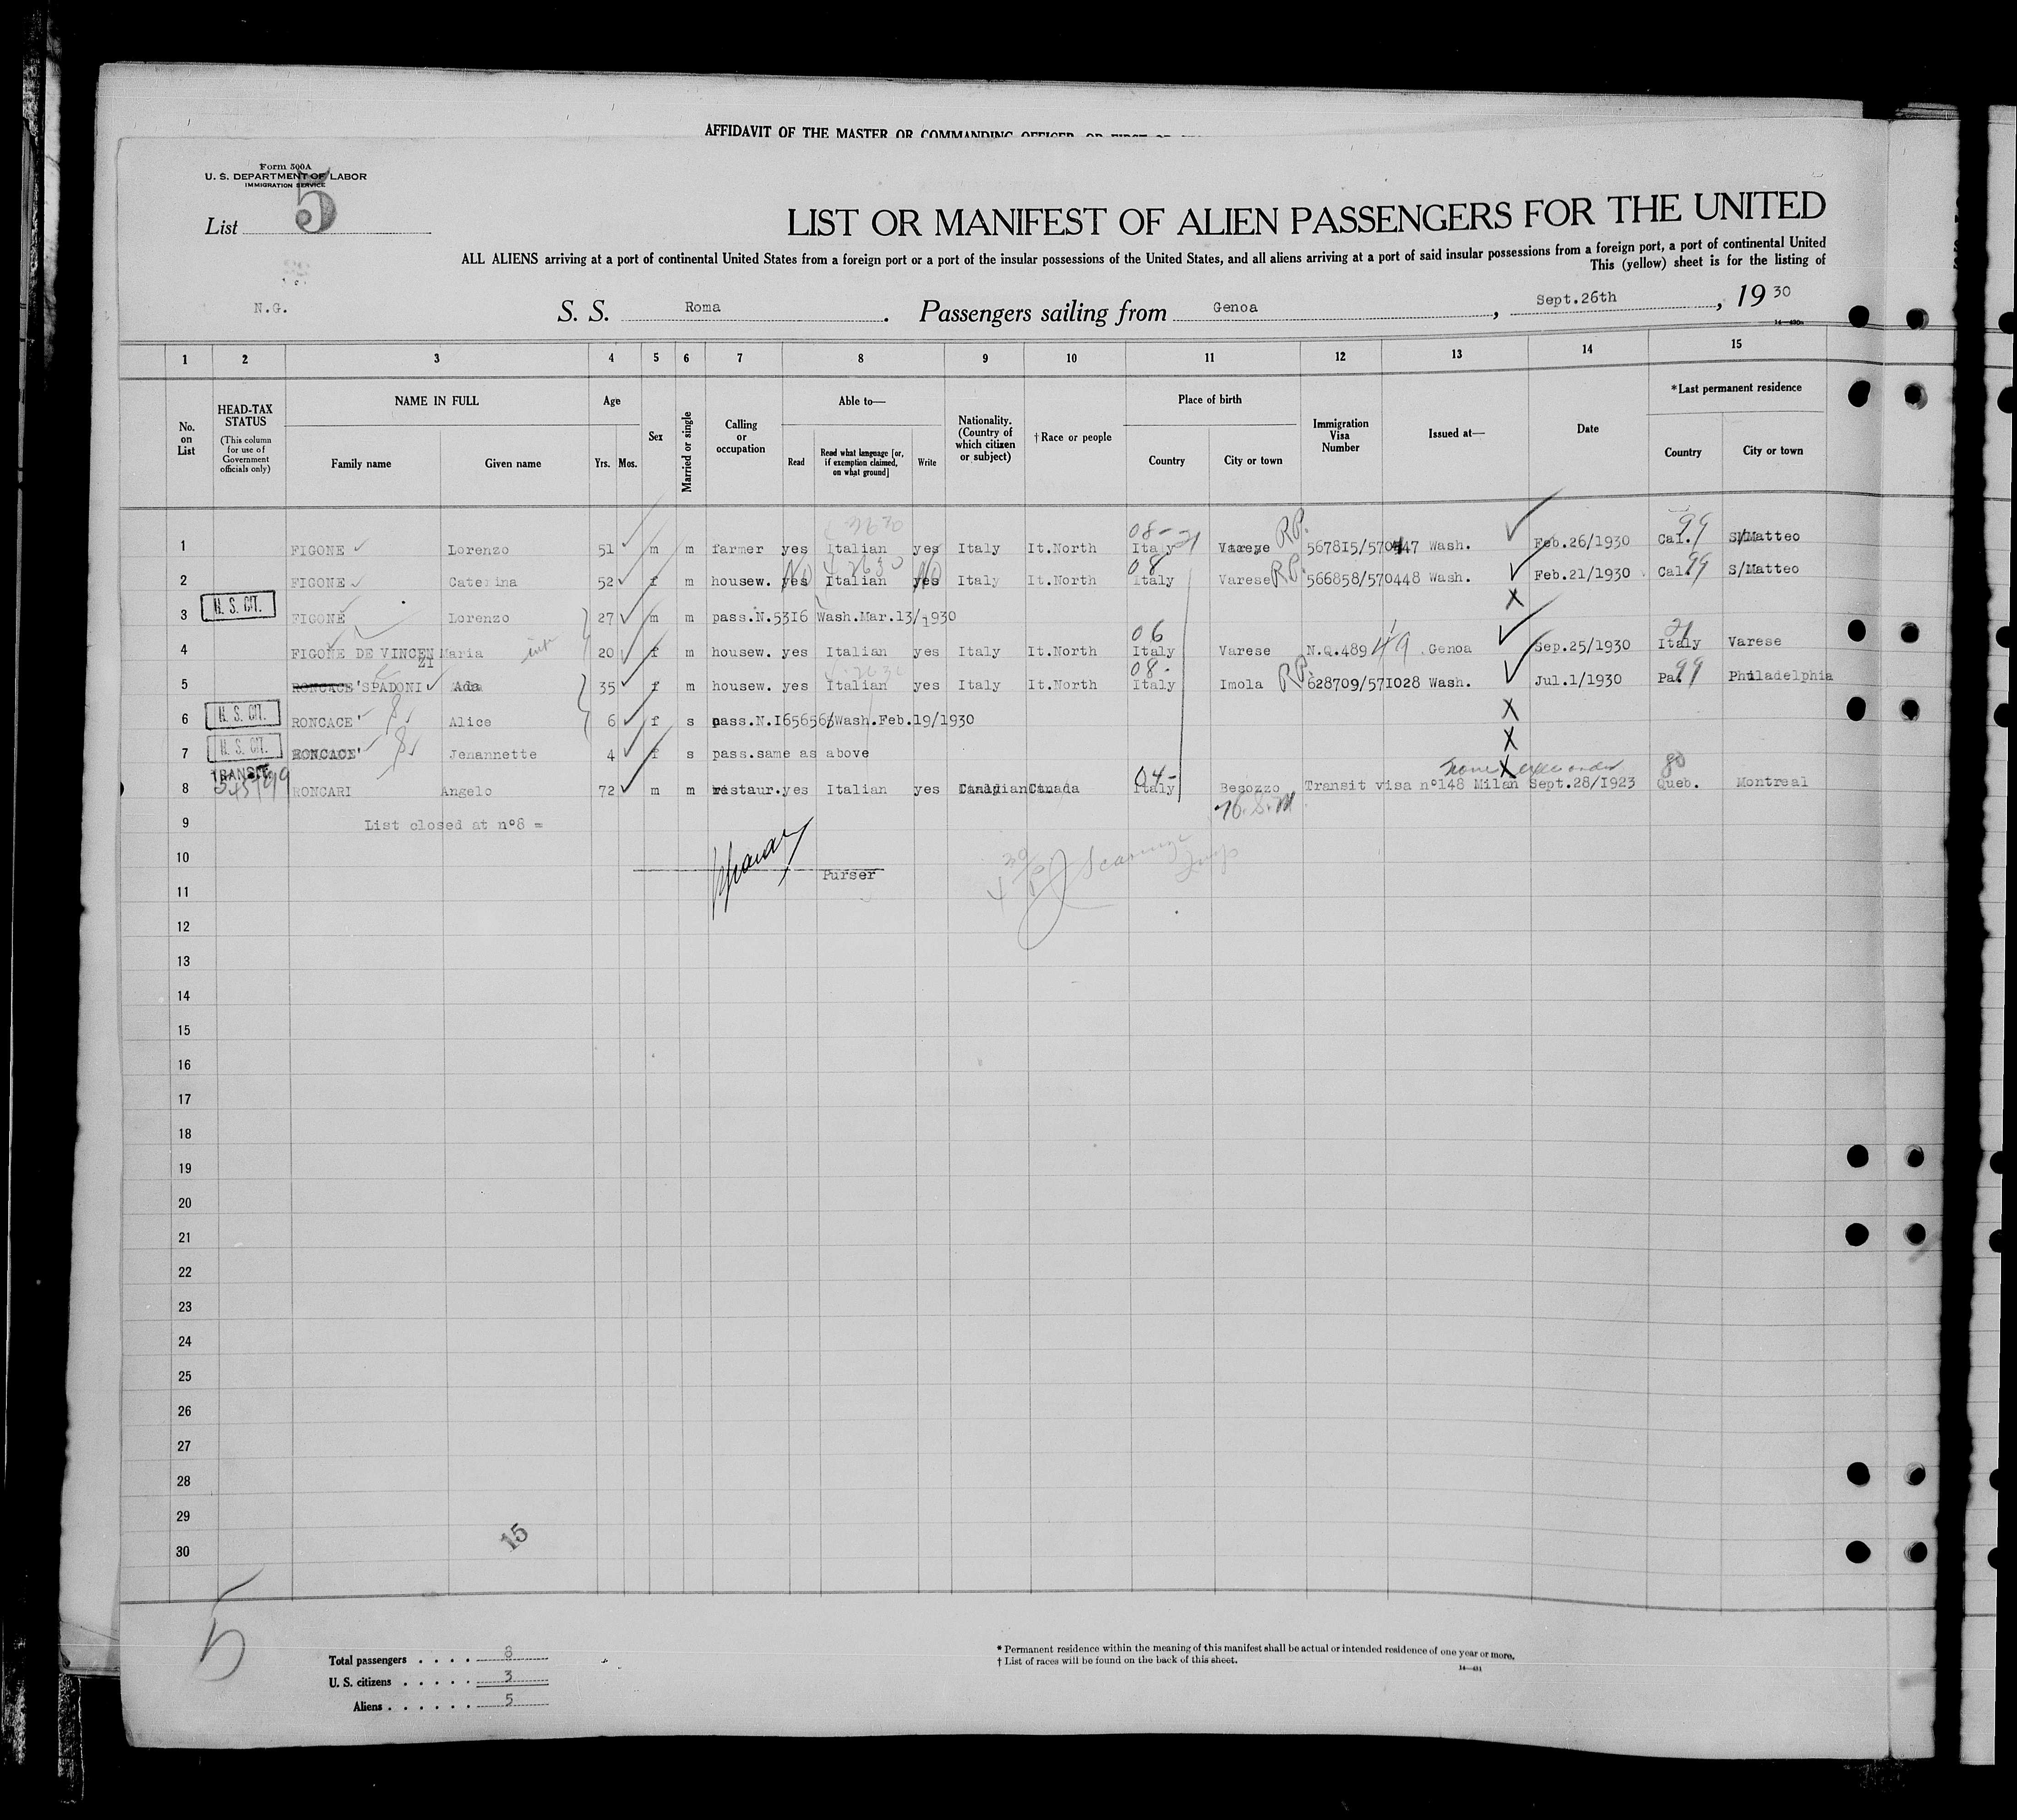 AFFIDAVIT OF THE MASTER OR COMMANDING OFFICER, OR FIRST OR
Form 500A
U. S. DEPARTMENT OF LABOR
IMMIGRATION SERVICE
List 5
LIST OR MANIFEST OF ALIEN PASSENGERS FOR THE UNITED
ALL ALIENS arriving at a port of continental United States from a foreign port or a port of the insular possessions of the United States, and all aliens arriving at a port of said insular possessions from a foreign port, a port of continental United
This (yellow) sheet is for the listing of
N.G. S. S. Roma. Passengers sailing from Genoa, Sept.26th, 1930
14—430a
1 2 3 4 5 6 7 8 9 10 11 12 13 14 15
No. on List
HEAD-TAX STATUS
(This column for use of Government officials only)
NAME IN FULL
Family name Given name
Age
Yrs. Mos.
Sex
Married or single
Calling or occupation
Able to—
Read Read what language [or, if exemption claimed, on what ground] Write
Nationality. (Country of which citizen or subject)
† Race or people
Place of birth
Country City or town
Immigration Visa Number
Issued at—
Date
*Last permanent residence
Country City or town
2630 08-21 RP. 99
1 FIGONE Lorenzo 51 m m farmer yes Italian yes Italy It.North Italy Varese 567815/570447 Wash. Feb.26/1930 Cal. S/Matteo
No 2630 No 08 RP. 99
2 FIGONE Caterina 52 f m housew. yes Italian yes Italy It.North Italy Varese 566858/570448 Wash. Feb.21/1930 Cal. S/Matteo
U. S. CIT. X
3 FIGONE Lorenzo 27 m m pass.N.5316 Wash.Mar.13/1930
06 21
4 FIGONE DE VINCENZI Maria 20 f m housew. yes Italian yes Italy It.North Italy Varese N.Q.489 49 Genoa Sep.25/1930 Italy Varese
2630 08- RP 99
5 RONCACE' SPADONI Ada 35 f m housew. yes Italian yes Italy It.North Italy Imola 628709/571028 Wash. Jul.1/1930 Pa. Philadelphia
U. S. CIT. X
6 RONCACE' Alice 6 f s pass.N.165656/Wash.Feb.19/1930
U. S. CIT. X
7 RONCACE' Jenannette 4 f s pass.same as above
TRANSIT X 04- 80
8 RONCARI Angelo 72 m m restaur. yes Italian yes Canadian Canada Italy Besozzo Transit visa n°148 Milan Sept.28/1923 Queb. Montreal
9 List closed at n°8 =
10
Purser
11
12
13
14
15
16
17
18
19
20
21
22
23
24
25
26
27
28
29
30
15
5
Total passengers . . . . 8
U. S. citizens . . . . . 3
Aliens . . . . . . 5
* Permanent residence within the meaning of this manifest shall be actual or intended residence of one year or more.
† List of races will be found on the back of this sheet.
14—431